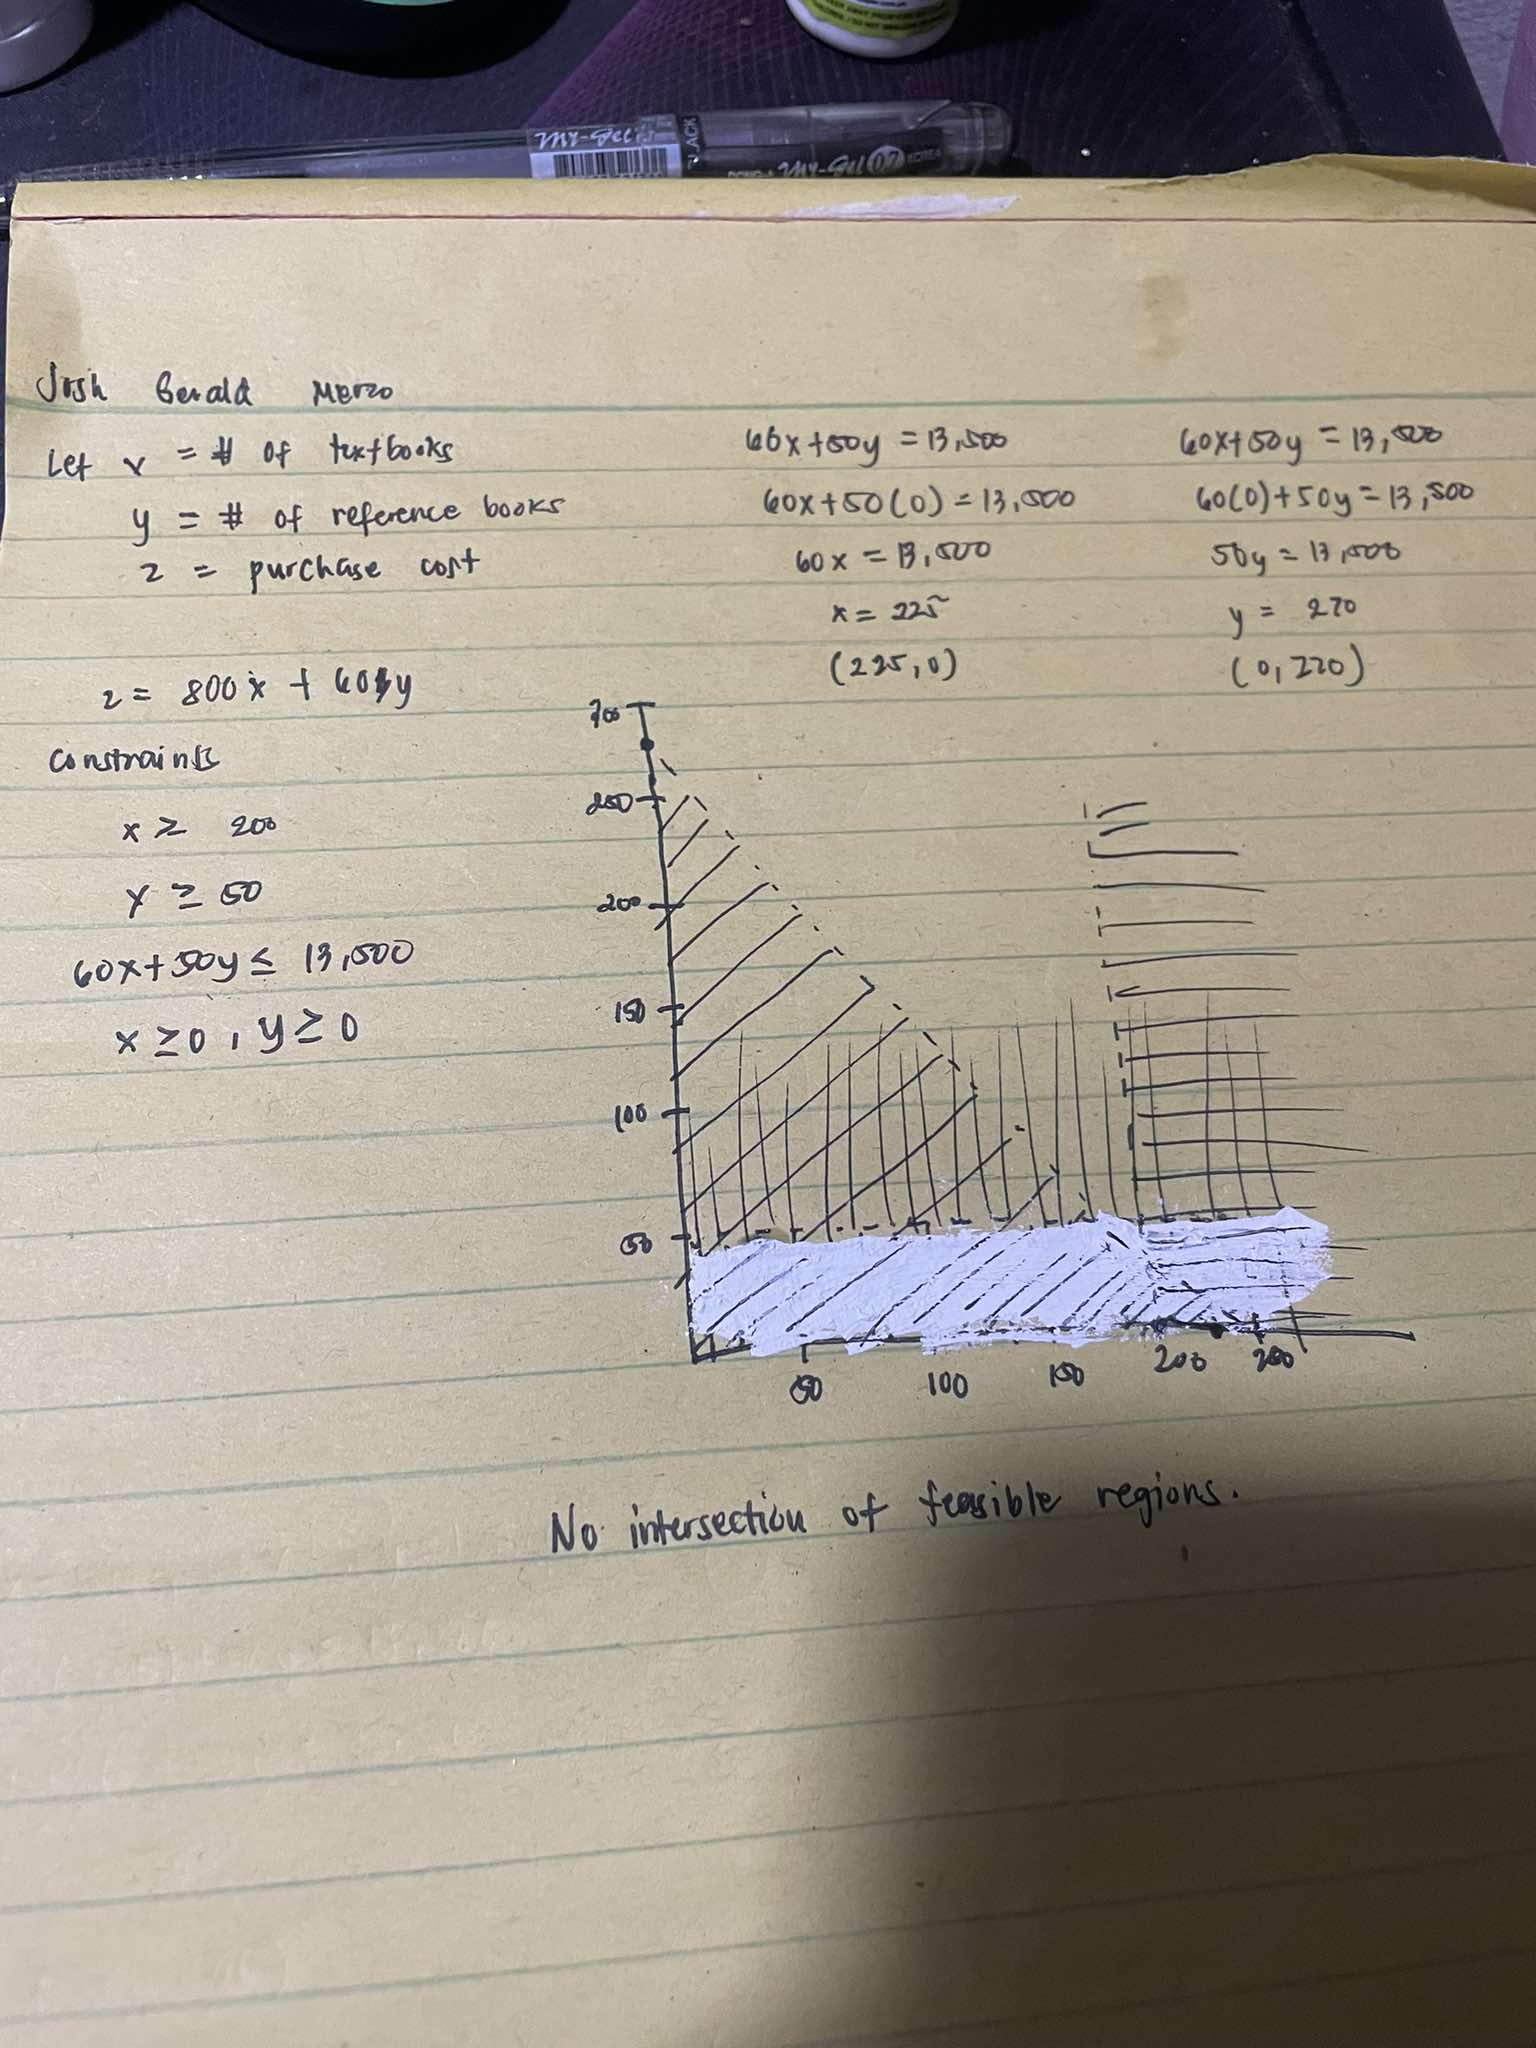 My-Gel
BLACK
DONG-A My-Gel 0.7 KOREA
Josh Gerald Merzo
Let x = # of textbooks
y = # of reference books
z = purchase cost
z = 800x + 60y
Constraints
x ≥ 200
y ≥ 50
60x+50y ≤ 13,500
x ≥ 0, y ≥ 0
60x+50y = 13,500
60x+50(0) = 13,500
60x = 13,500
x = 225
(225,0)
60x+50y = 13,500
60(0)+50y = 13,500
50y = 13,500
y = 270
(0,270)
300
250
200
150
100
50
50 100 150 200 250
No intersection of feasible regions.